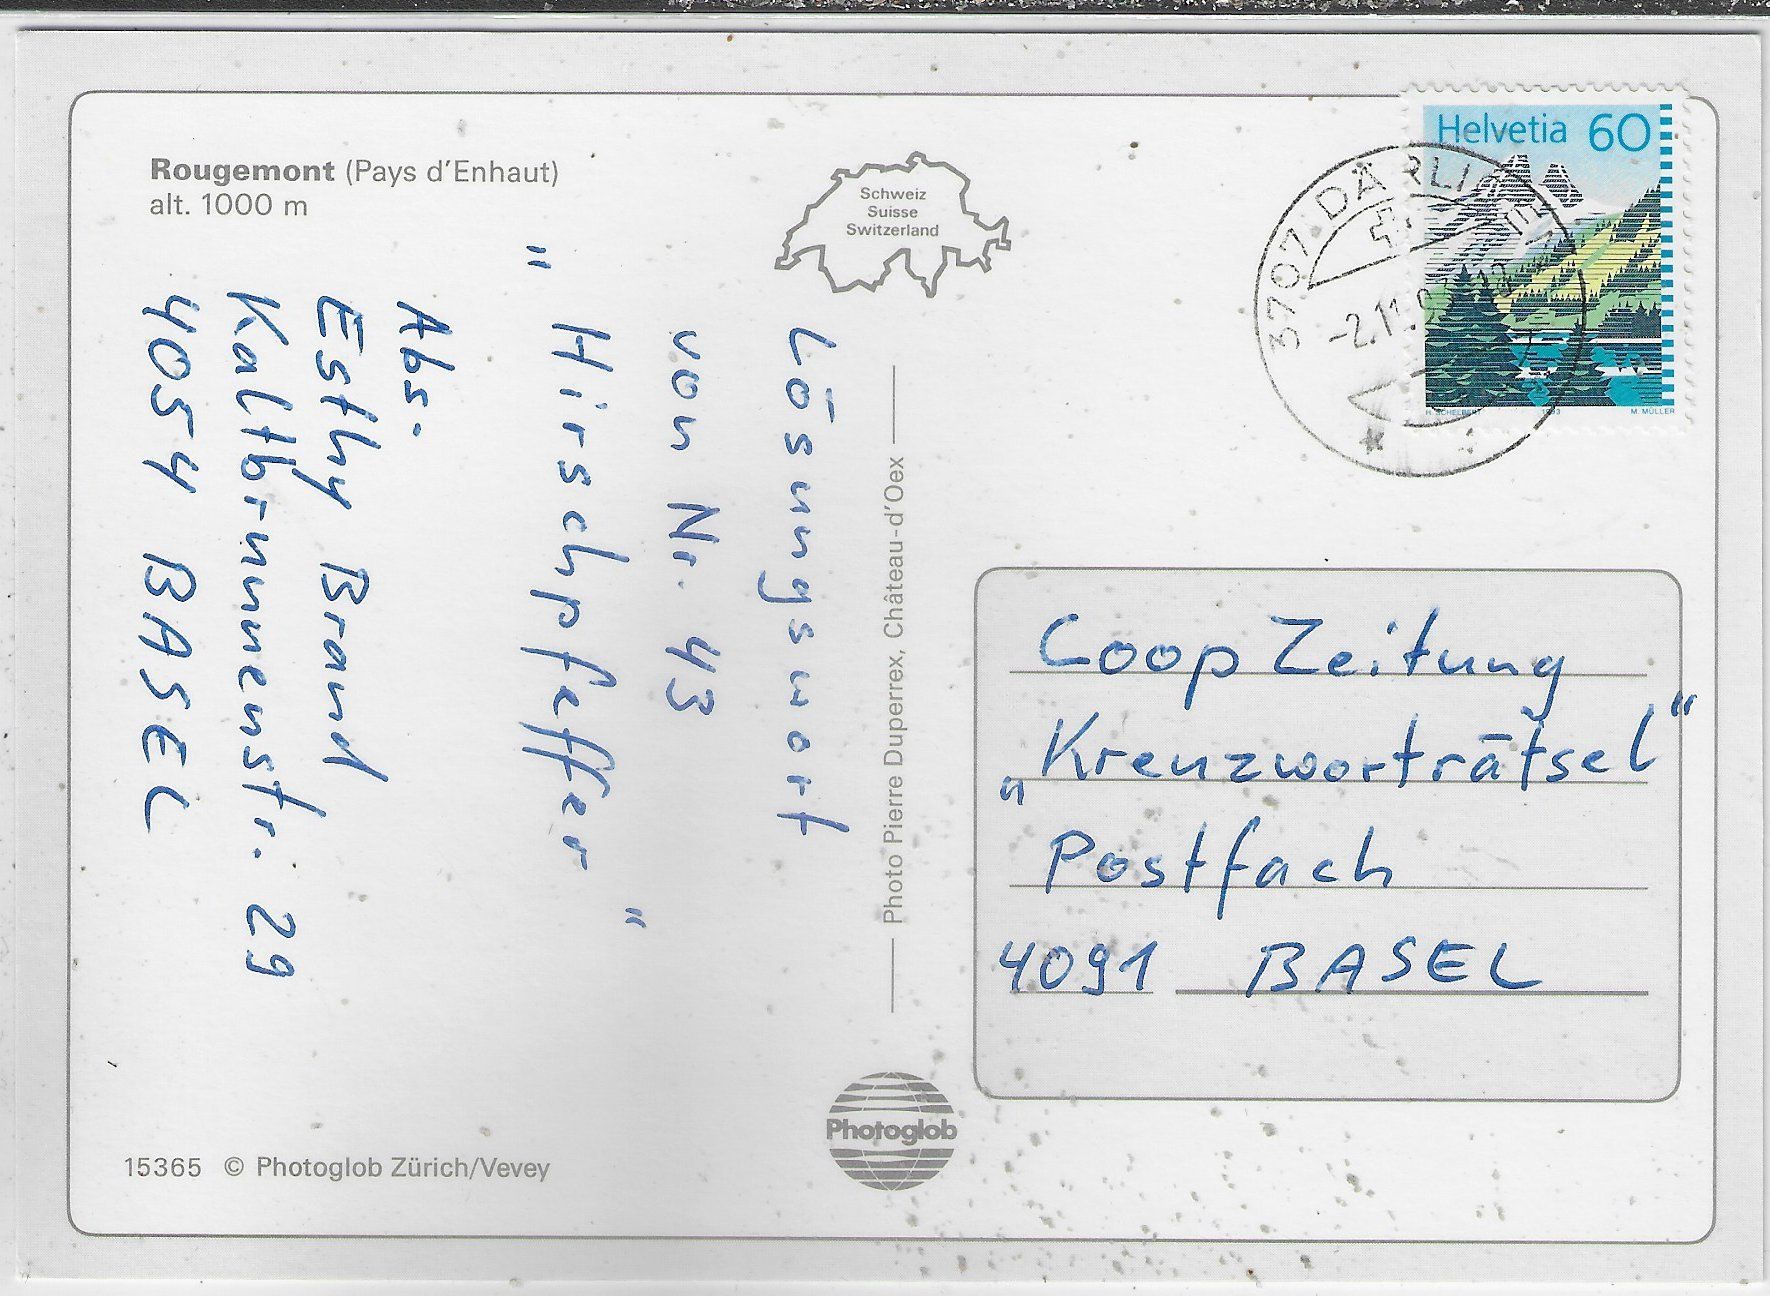 Rougemont (Pays d'Enhaut)
alt. 1000 m
Schweiz
Suisse
Switzerland
Helvetia 60
H. SCHELBERT 1993 M. MÜLLER
3707 DÄRLIGEN
-2.11.9
Lösungswort
von Nr. 43
" Hirschpfeffer "
Abs.
Esthy Brand
Kaltbrunnenstr. 29
4054 BASEL
Photo Pierre Duperrex, Château-d'Oex
Coop Zeitung
„Kreuzworträtsel"
Postfach
4091 BASEL
Photoglob
15365 © Photoglob Zürich/Vevey